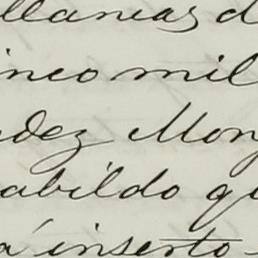 llaneas d
inco mil
ndez Mon
abildo qu
á inserto